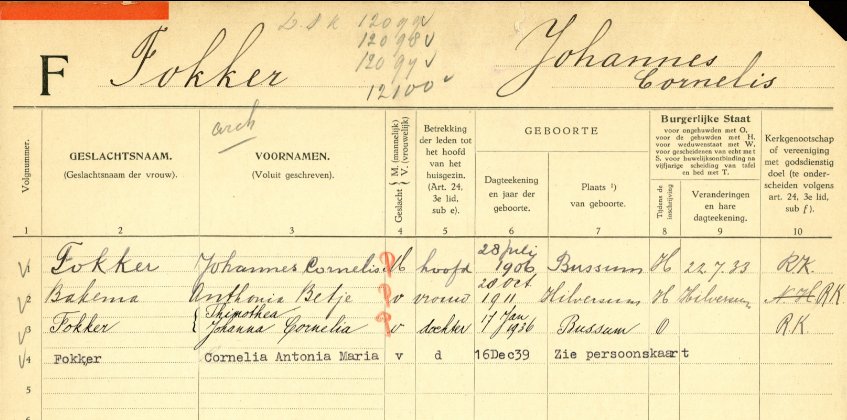 12099
12098
12097
12100
F Fokker Johannes
Cornelis
arch
Volgnummer.
GESLACHTSNAAM.
(Geslachtsnaam der vrouw).
VOORNAMEN.
(Voluit geschreven).
Geslacht { M. (mannelijk) V. (vrouwelijk)
Betrekking
der leden tot
het hoofd
van het
huisgezin.
(Art. 24,
3e lid,
sub e).
GEBOORTE
Dagteekening
en jaar der
geboorte.
Plaats ¹)
van geboorte.
Burgerlijke Staat
voor ongehuwden met O.
voor de gehuwden met H.
voor weduwenstaat met W.
voor gescheidenen van echt met
S. voor huwelijksontbinding na
vijfjarige scheiding van tafel
en bed met T.
Tijdens de
inschrijving
Veranderingen
en hare
dagteekening.
Kerkgenootschap
of vereeniging
met godsdienstig
doel (te onder-
scheiden volgens
art. 24, 3e lid,
sub f).
1 2 3 4 5 6 7 8 9 10
1 Fokker Johannes Cornelis M hoofd 28 Juli 1906 Bussum H 22.7.33 R.K.
2 Bakema Anthonia Betje v vrouw 20 Oct. 1911 Hilversum H Hilversum N.H. R.K.
3 Fokker { Thimothea Johanna Cornelia v dochter 17 Jan 1936 Bussum O R.K.
4 Fokker Cornelia Antonia Maria v d 16Dec39 Zie persoonskaart
5
6